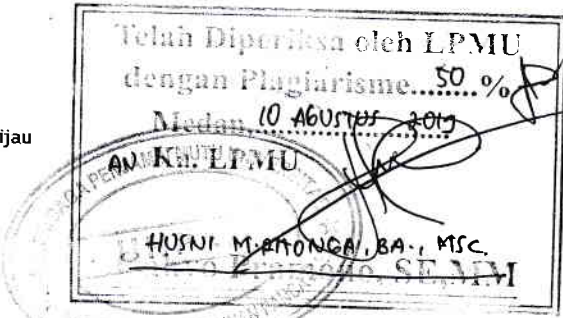 Telah Diperiksa oleh LPMU
dengan Plagiarisme...50...%
ijau
Medan, 10 AGUSTUS 2019
AN. Ka. LPMU
HUSNI M. RITONGA, BA., MSC.
SE.MM